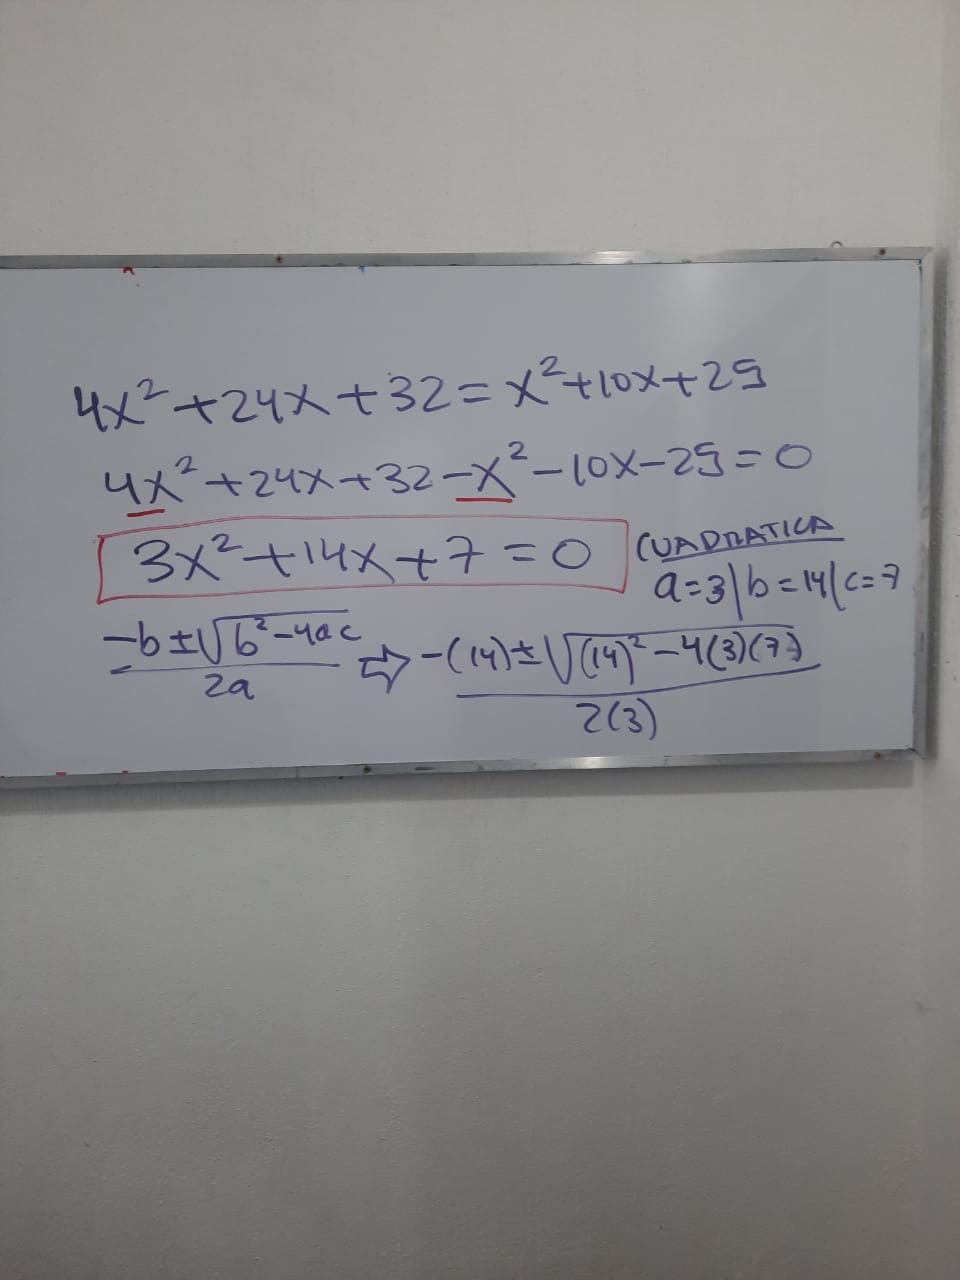 4x²+24x+32=x²+10x+25
4x²+24x+32-x²-10x-25=0
3x²+14x+7=0
CUADRATICA
a=3|b=14|c=7
-b±√b²-4ac/2a ⇨ -(14)±√(14)²-4(3)(7)/2(3)